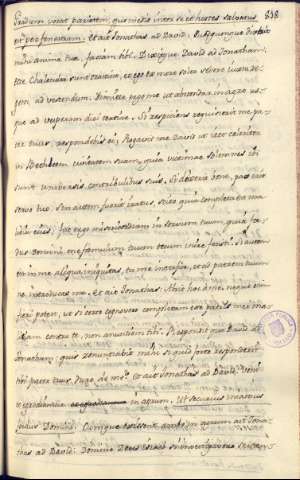 et perfenestram. Et ait Jonathas ad David. Quodcunque dixerit
mihi anima tua, faciam tibi. Dixitque David ad Jonathan:
ecce Chalendæ sunt crastino, et ego ex more soleo sedere juxta Re-
gem ad vescendum. Dimitte ergo me ut abscondar in agro us-
que ad vesperam diei tertiæ. Si respiciens requisierit me pa-
ter tuus, respondebis ei, Rogavit me David ut iret celeriter
in Bethleem civitatem suam, quia victimæ solemnes ibi
sunt universis contribulibus suis. Si dixerit bene, pax erit
servo tuo. Sin autem fuerit iratus, scito quia completa est ma-
litia eius. Fac ergo misericordiam in servum tuum, quia foe-
dus Domini me famulum tuum tecum inire fecisti. Si autem
est in me aliqua iniquitas, tu me interfice, et ad patrem tuum
ne introducas me. Et ait Jonathas: Absit hoc a te, neque enim
fieri potest, ut si certe cognovero completam esse patris mei ma-
litiam contra te, non annuntiem tibi. Et respondit David ad
Jonathan: quis renuntiabit mihi si quid forte responderit
tibi pater tuus, dure de me? Et ait Jonathas ad David: Veni
et egrediamur in agrum. Ut
Domini. Cumque exissent ambo in agrum ait Jona-
thas ad David: Domine Deus Israel si investigavero